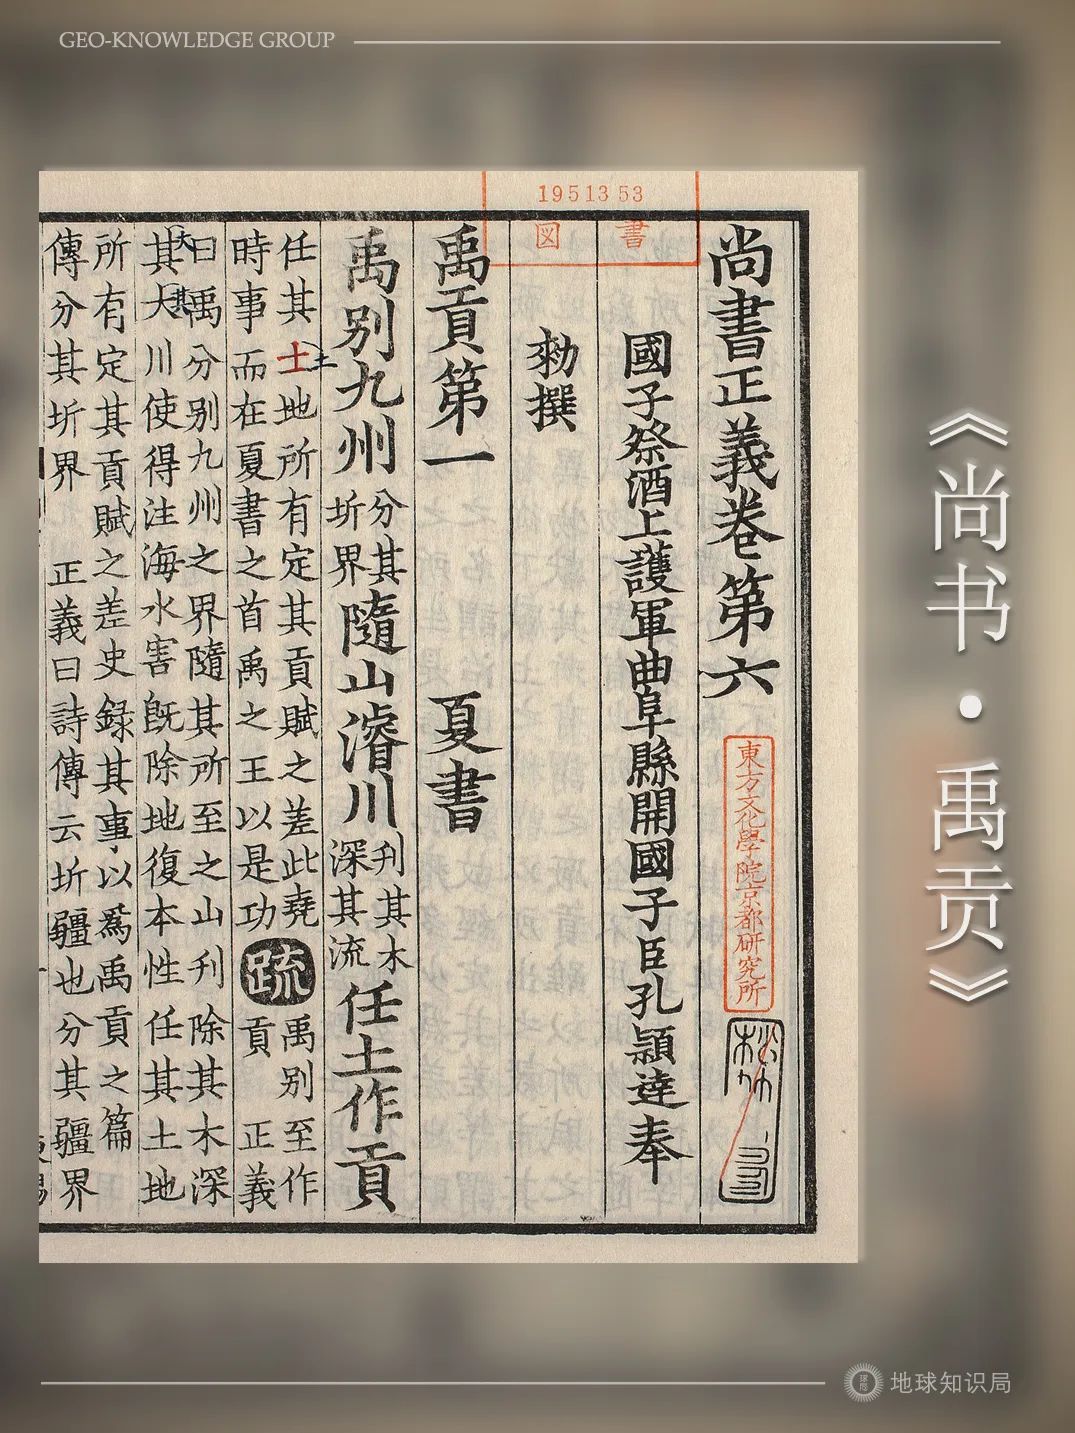 GEO-KNOWLEDGE GROUP
《尚书·禹贡》
1951353
図書
尚書正義卷第六
國子祭酒上護軍曲阜縣開國子臣孔穎達奉
勑撰
禹貢第一 夏書
禹别九州
分其
圻界
隨山濬川
刋其木
深其流
任土作貢
任其土地所有定其貢賦之差此堯
土
時事而在夏書之首禹之王以是功
疏
禹别至作
貢 正義
曰禹分别九州之界隨其所至之山刋除其木深
大
其
其大川使得注海水害旣除地復本性任其土地
所有定其貢賦之差史録其事以爲禹貢之篇
傳分其圻界 正義曰詩傳云圻疆也分其疆界
東方文化學院京都研究所
地球知识局